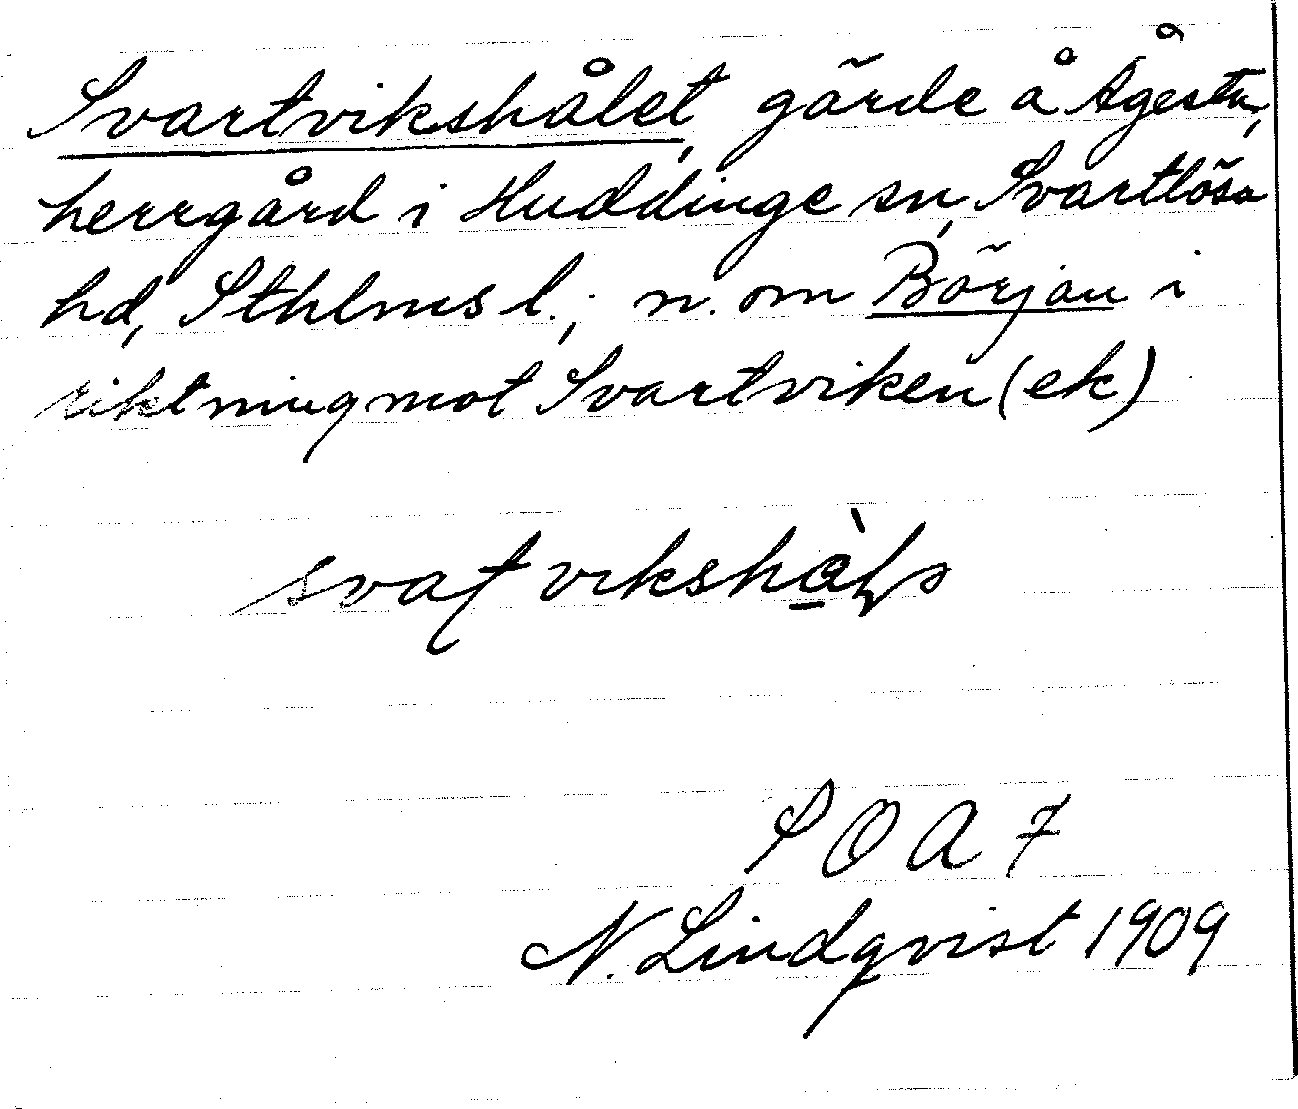 Svartvikshålet, gärde å Ågesta,
herrgård i Huddinge sn, Svartlösa
hd, Sthlms l.; n. om Början i
riktning mot Svartviken (ek)
S O A 7
N. Lindqvist 1909